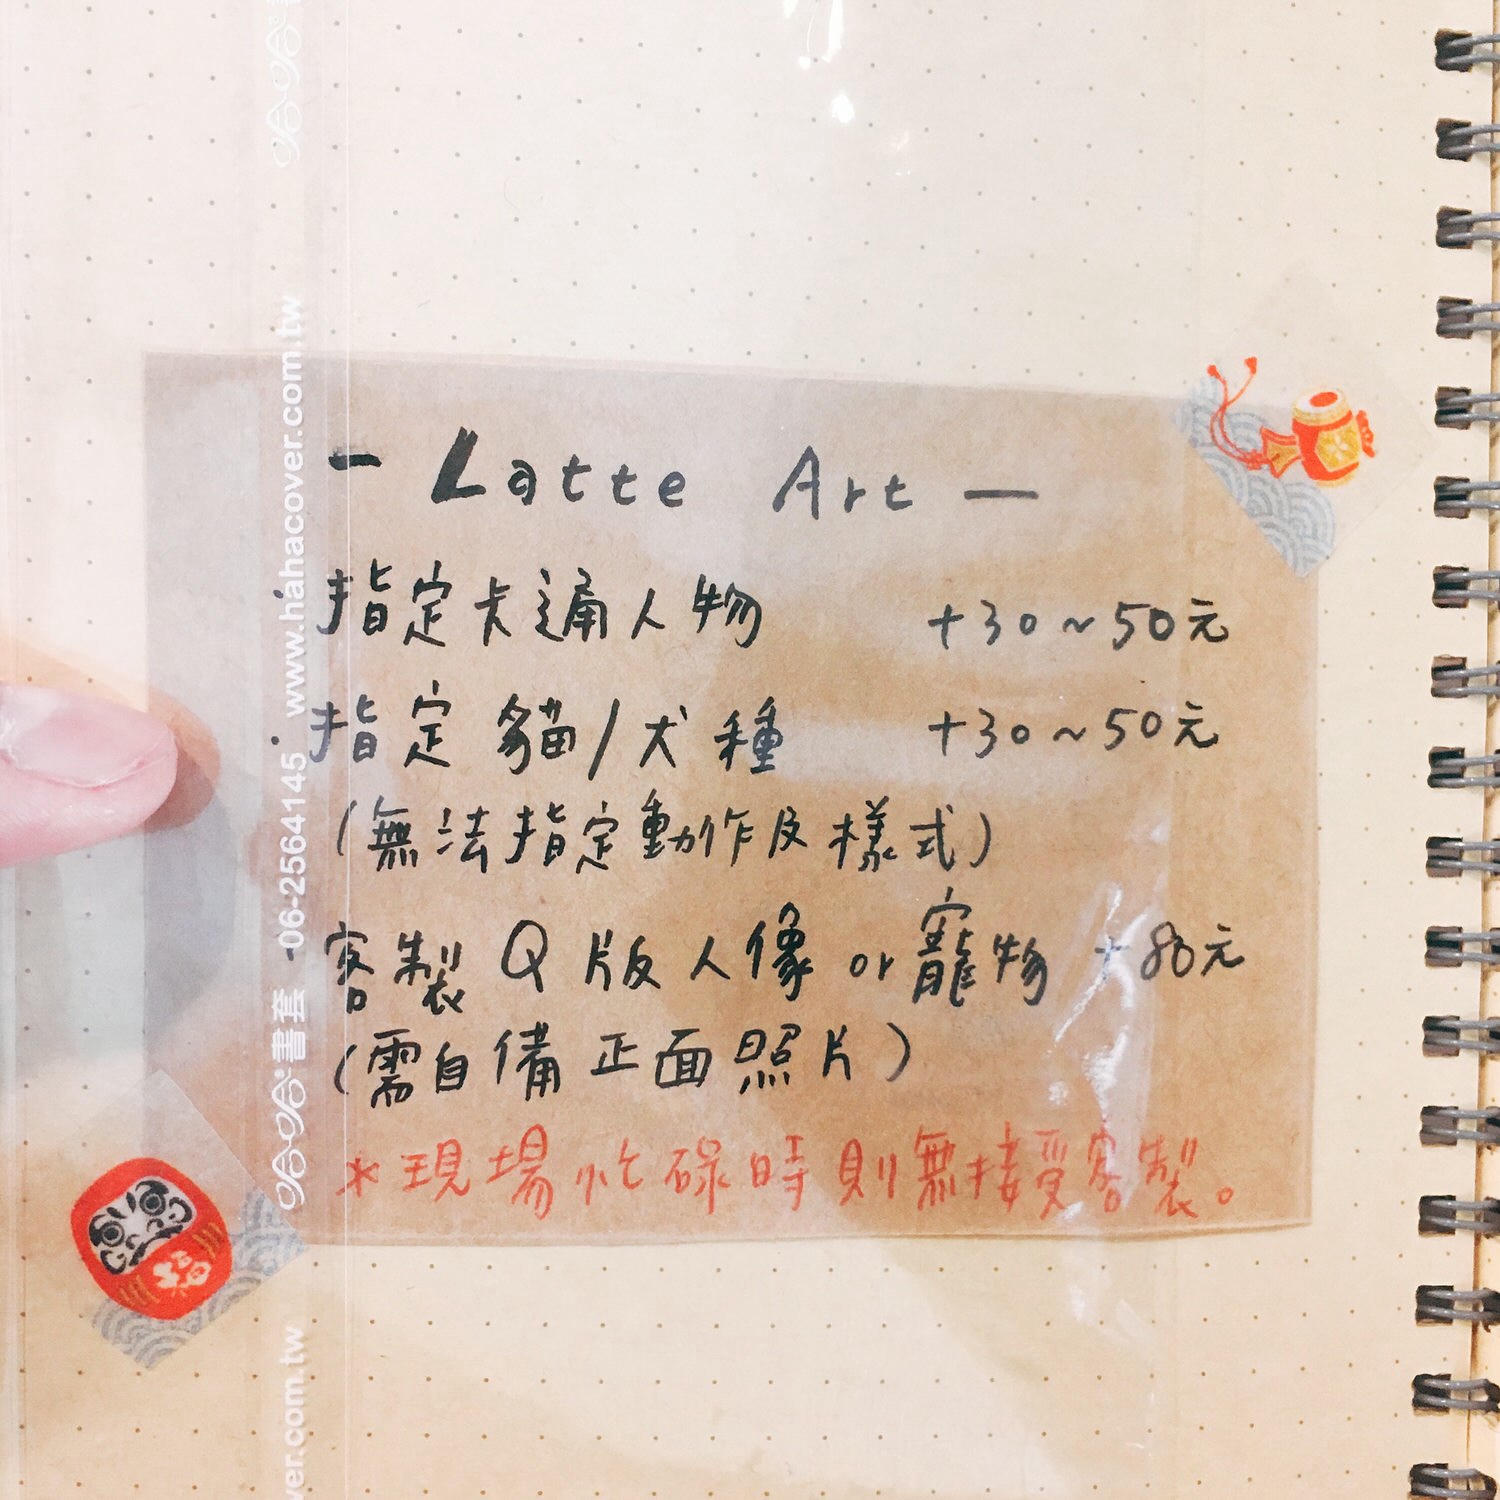 - Latte Art -
·指定卡通人物 +30~50元
·指定 貓/犬種 +30~50元
(無法指定動作及樣式)
·客製 Q版人像 or 寵物 +80元
(需自備正面照片)
*現場忙碌時則無接受客製。
哈哈書套 06-2564145 www.hahacover.com.tw
哈哈書
ver.com.tw
福